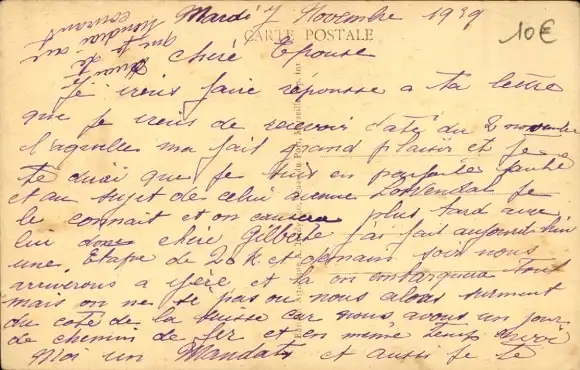 Mardi 7 Novembre 1939
CARTE POSTALE
10€
chère Epouse
Je viens faire réponsse a ta lettre
que je viens de recevoir daté du 2 novembre
laquelle ma fait grand plaisir et je
te dirai que je suis en parfaite santé
et au sujet de celui avenue Lowendal je
le connait et on causera plus tard avec
lui donc chère Gilberte j'ai fait aujourd'hui
une Etape de 20 K et demain soir nous
arriverons a fère et la on embarquera tout
mais on ne se pas ou nous alons surment
du coté de la suisse car nous avons un jour
de chemin de fer et en même temps envoi
Moi un Mandats et aussi je te
tiendrai au
courant